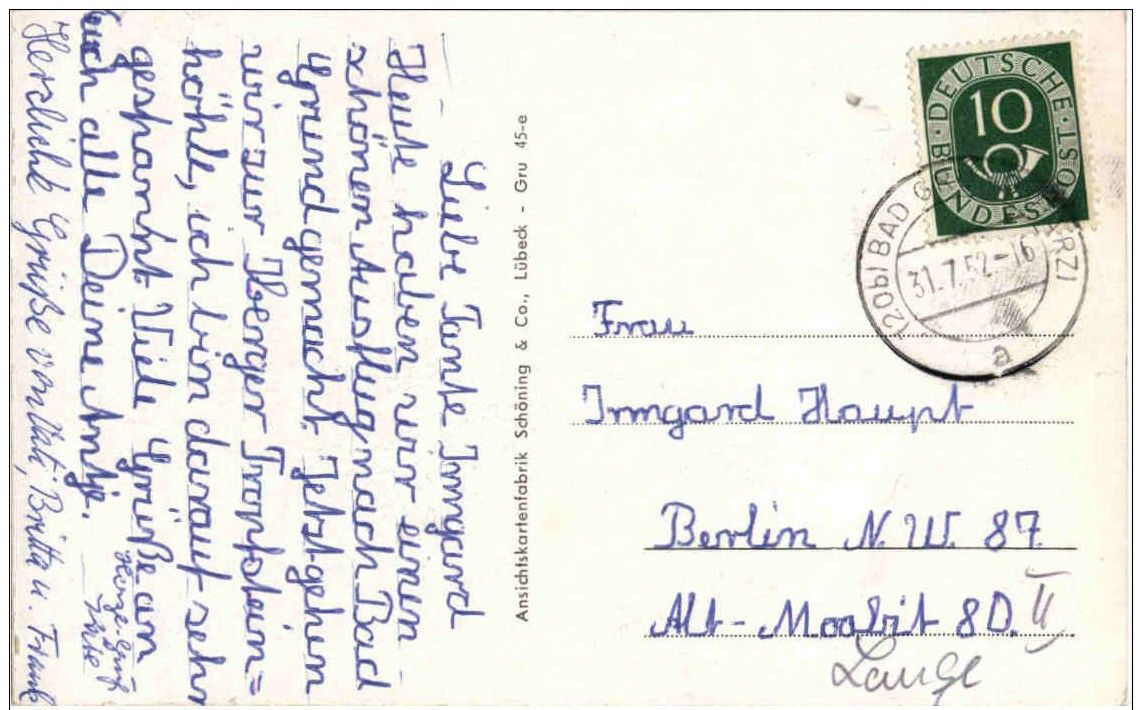 Liebe Tante Irmgard
Heute haben wir einen
schönen Ausflug nach Bad
Grund gemacht. Jetzt gehen
wir zur Iberger Tropfstein=
höhle, ich bin darauf sehr
gespannt Viele Grüße an
Euch alle Deine Antje.
Herzliche Grüße von Kati, Britta u. Frank
Ansichtskartenfabrik Schöning & Co., Lübeck - Gru 45-e
DEUTSCHE BUNDESPOST
10
(20b) BAD G HARZ)
31.7.52-16
a
Frau
Irmgard Haupt
Berlin N.W. 87.
Alt-Moabit 8D. II
Lange